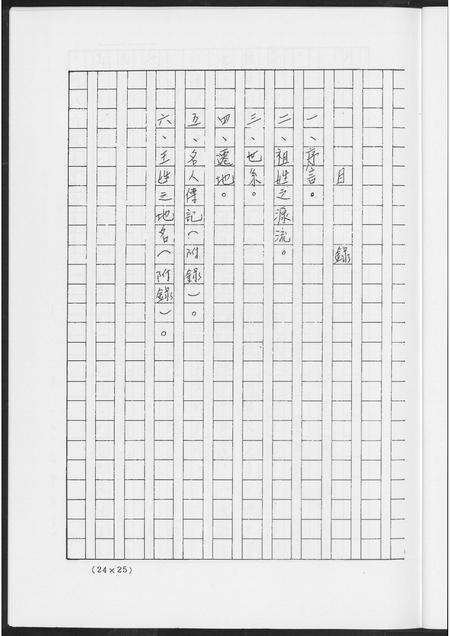 目錄
一、序言。
二、祖姓之源流。
三、世系。
四、遷地。
五、名人傳記(附錄)。
六、王姓之地名(附錄)。
(24×25)